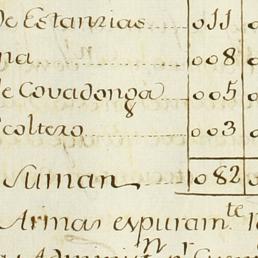 de Estancias 011
na 008
de Covadonga 005
Scoltero 003
Suman 082
Armas espuram.te